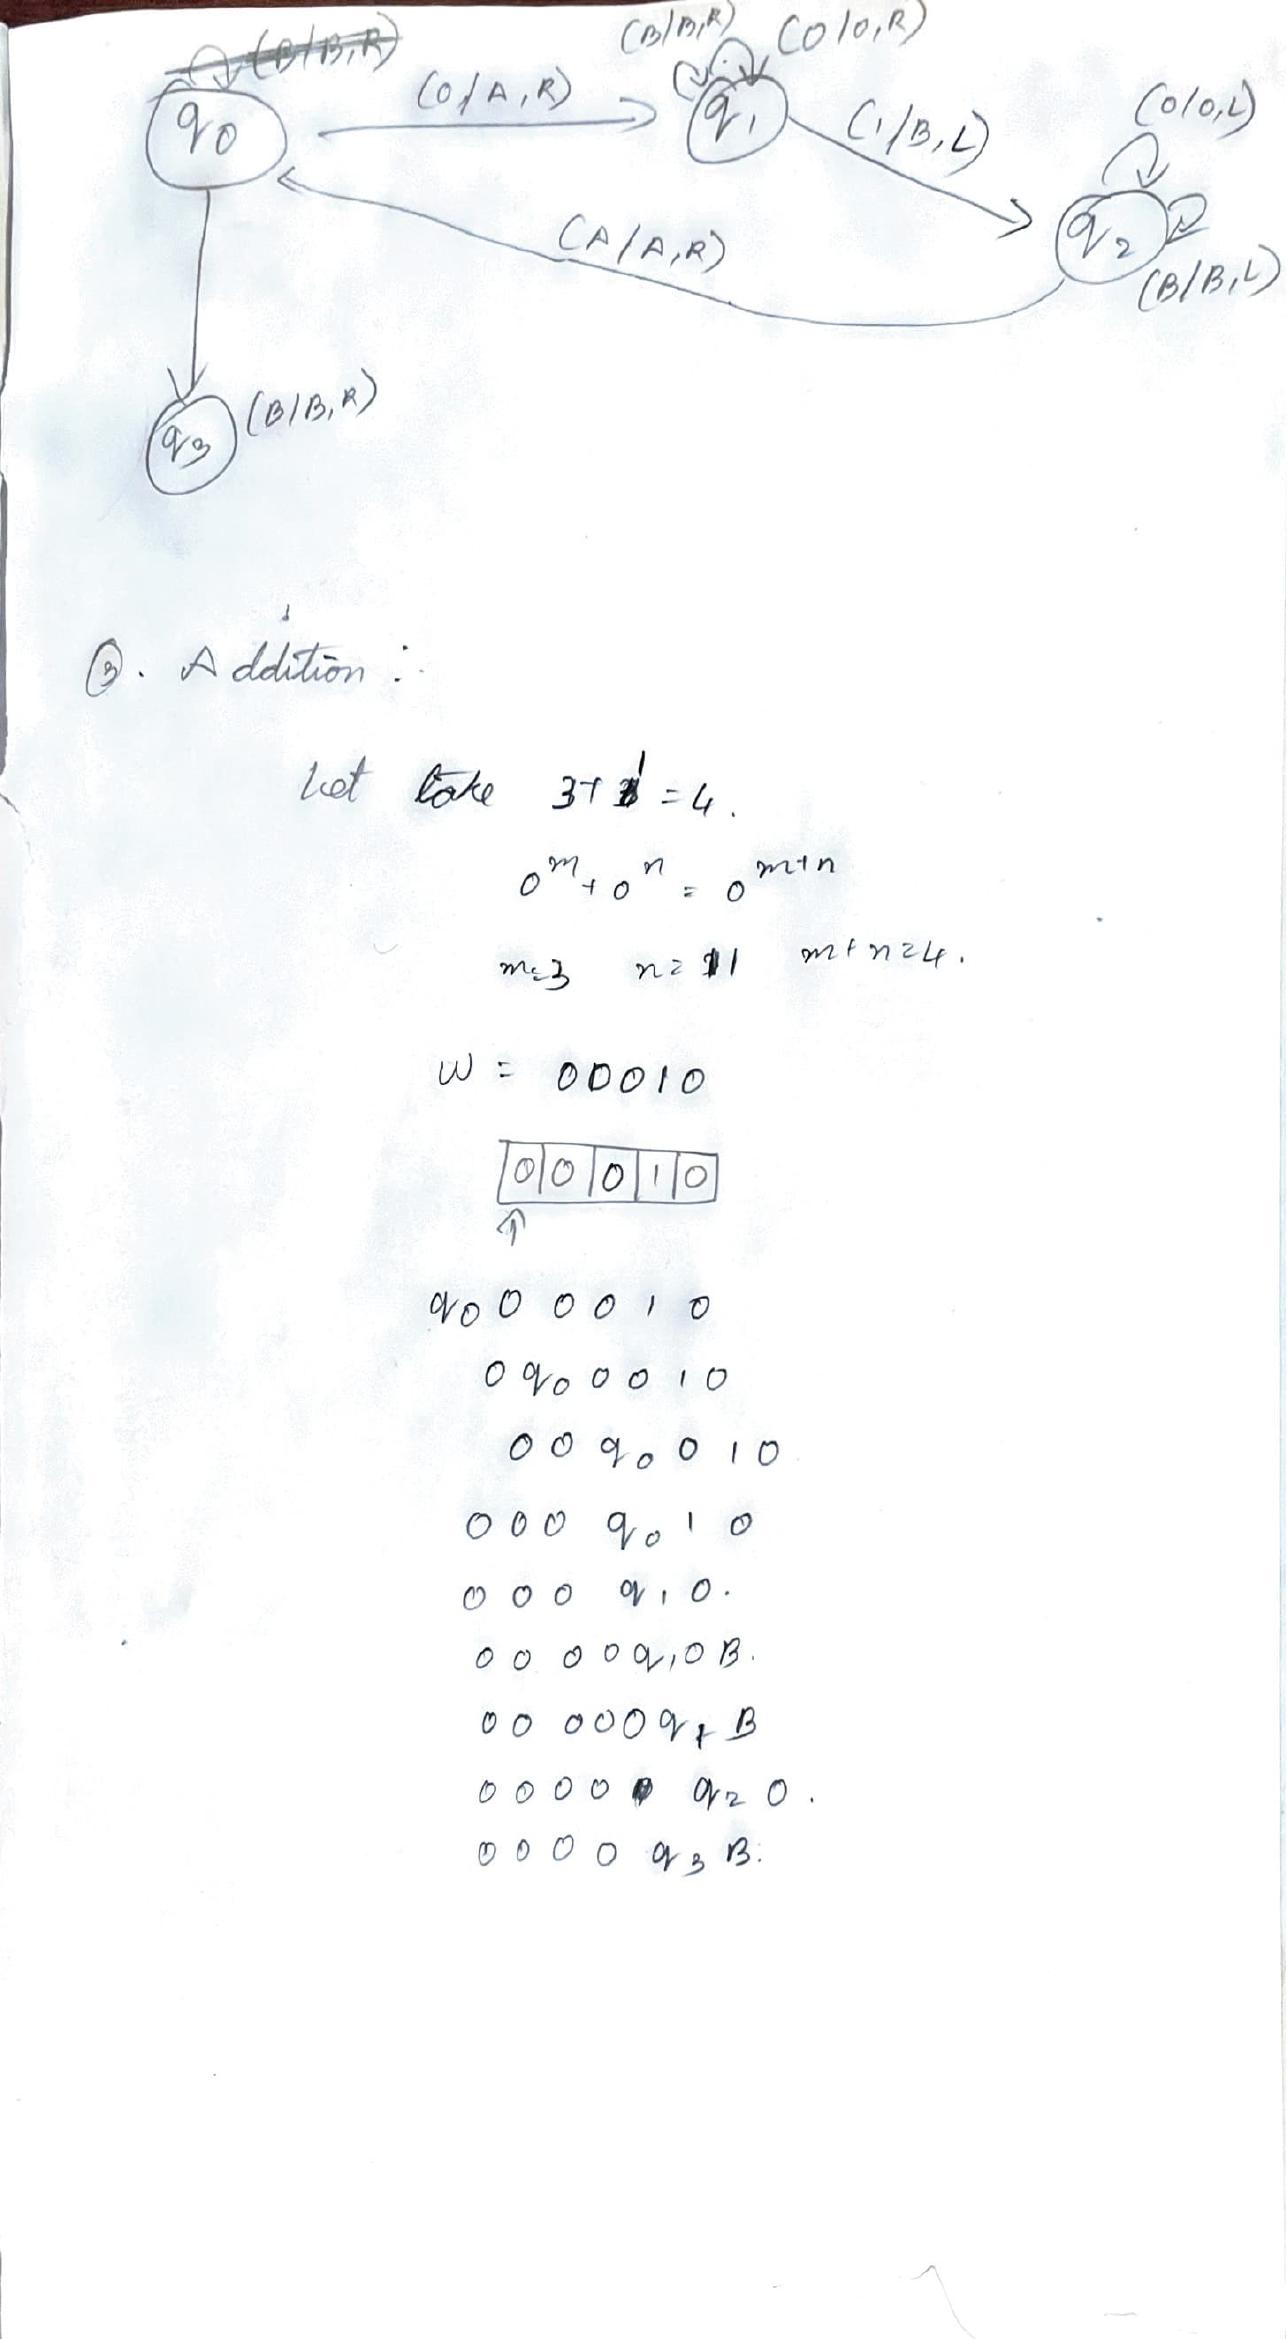 (B/B,R)
(B/B,R) (0/0,R)
q0 (0/A,R) q1 (1/B,L) (0/0,L)
(A/A,R) q2
(B/B,L)
q3 (B/B,R)
3. Addition :
Let take 3+1 = 4.
0^m + 0^n = 0^m+n
m=3 n=1 m+n=4.
W = 00010
0 0 0 1 0
q0 0 0 0 1 0
0 q0 0 0 1 0
0 0 q0 0 1 0
0 0 0 q0 1 0
0 0 0 q1 0.
0 0 0 0 q1 0 B.
0 0 0 0 0 q1 B
0 0 0 0 q2 0.
0 0 0 0 q3 B.